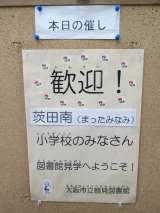 本日の催し
歓迎！
茨田南（まったみなみ）
小学校のみなさん
図書館見学へようこそ！
大阪市立鶴見図書館